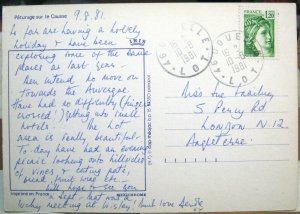 Pâturage sur le Causse
9.8.81.
So far are having a lovely
holiday & have been
exploring some of the same
places as last year.
Then intend to move on
towards the Auvergne.
Have had no difficulty (fingers
crossed!) getting into small
hotels. The Lot
area is really beautiful.
To day have had an evening
picnic looking onto hillsides
of vines & eating pate,
bread, fruit wine etc.
hope to see you
in Sept - but not a
meeting at Wisley! Much love
Imprimé en France
1.20
LOT
LOT
46
1981
Miss Sue
5 Percy Rd
London N.12
Angleterre!